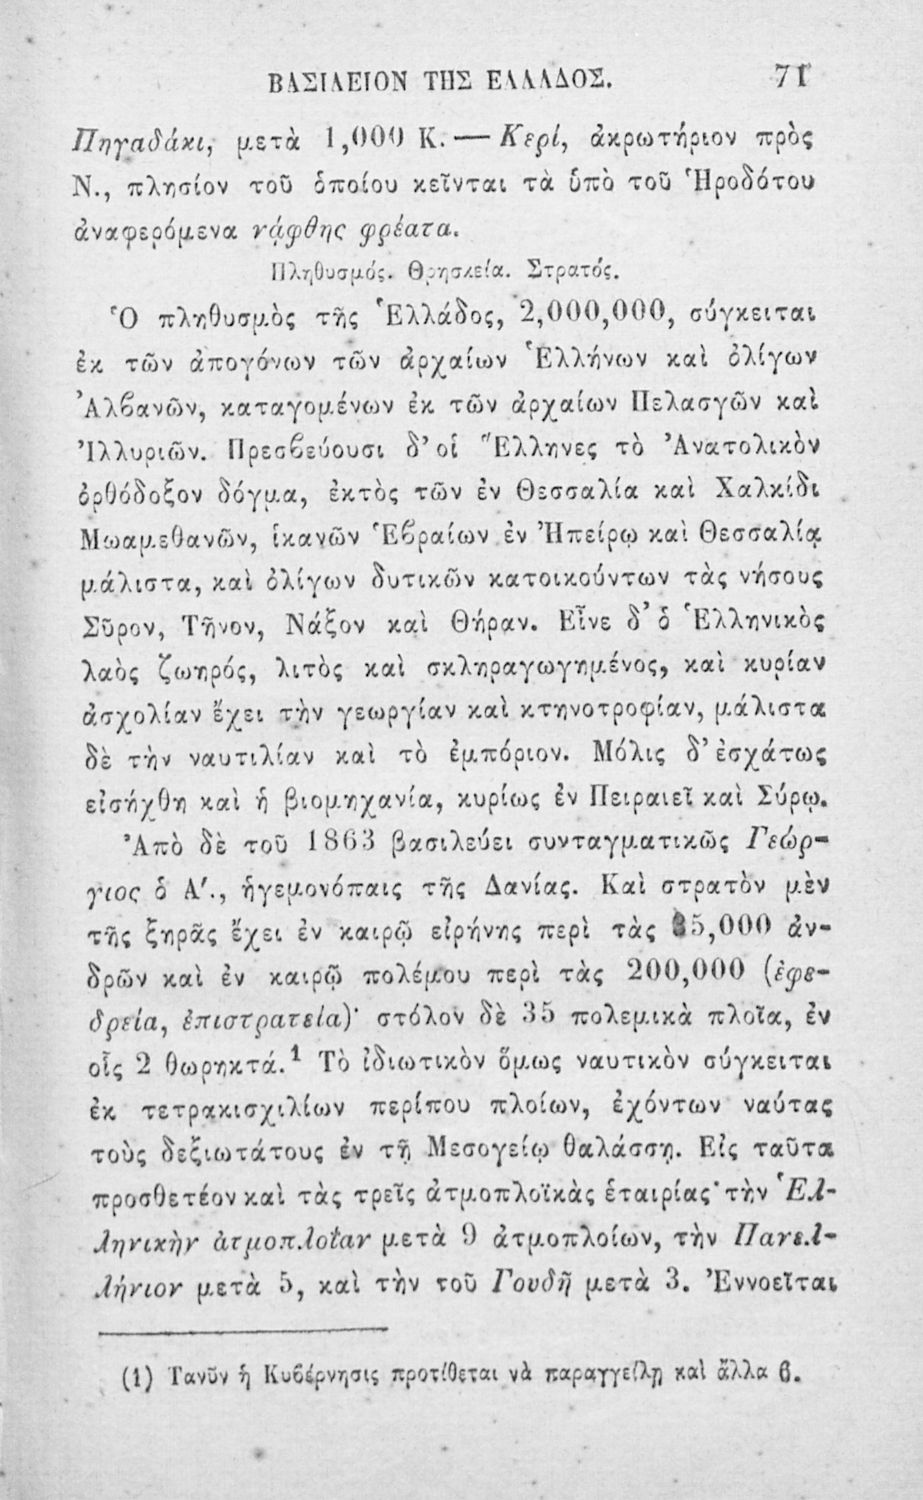 ΒΑΣΙΛΕΙΟΝ ΤΗΣ ΕΛΛΑΔΟΣ. 71
Πηγαδάκι, μετὰ 1,000 Κ. — Κερί, ἀκρωτήριον πρὸς
Ν., πλησίον τοῦ ὁποίου κεῖνται τὰ ὑπὸ τοῦ Ἡροδότου
ἀναφερόμενα νάφθης φρέατα.
Πληθυσμός. Θρησκεία. Στρατός.
Ὁ πληθυσμὸς τῆς Ἑλλάδος, 2,000,000, σύγκειται
ἐκ τῶν ἀπογόνων τῶν ἀρχαίων Ἑλλήνων καὶ ὀλίγων
Ἀλβανῶν, καταγομένων ἐκ τῶν ἀρχαίων Πελασγῶν καὶ
Ἰλλυριῶν. Πρεσβεύουσι δ' οἱ Ἕλληνες τὸ Ἀνατολικὸν
ὀρθόδοξον δόγμα, ἐκτὸς τῶν ἐν Θεσσαλία καὶ Χαλκίδι
Μωαμεθανῶν, ἱκανῶν Ἑβραίων ἐν Ἠπείρῳ καὶ Θεσσαλίᾳ
μάλιστα, καὶ ὀλίγων δυτικῶν κατοικούντων τὰς νήσους
Σῦρον, Τῆνον, Νάξον καὶ Θήραν. Εἶνε δ' ὁ Ἑλληνικὸς
λαὸς ζωηρός, λιτὸς καὶ σκληραγωγημένος, καὶ κυρίαν
ἀσχολίαν ἔχει τὴν γεωργίαν καὶ κτηνοτροφίαν, μάλιστα
δὲ τὴν ναυτιλίαν καὶ τὸ ἐμπόριον. Μόλις δ' ἐσχάτως
εἰσήχθη καὶ ἡ βιομηχανία, κυρίως ἐν Πειραιεῖ καὶ Σύρῳ.
Ἀπὸ δὲ τοῦ 1863 βασιλεύει συνταγματικῶς Γεώρ-
γιος ὁ Α'., ἡγεμονόπαις τῆς Δανίας. Καὶ στρατὸν μὲν
τῆς ξηρᾶς ἔχει ἐν καιρῷ εἰρήνης περὶ τὰς 35,000 ἀν-
δρῶν καὶ ἐν καιρῷ πολέμου περὶ τὰς 200,000 (ἐφε-
δρεία, ἐπιστρατεία)· στόλον δὲ 35 πολεμικὰ πλοῖα, ἐν
οἷς 2 θωρηκτά.¹ Τὸ ἰδιωτικὸν ὅμως ναυτικὸν σύγκειται
ἐκ τετρακισχιλίων περίπου πλοίων, ἐχόντων ναύτας
τοὺς δεξιωτάτους ἐν τῇ Μεσογείῳ θαλάσσῃ. Εἰς ταῦτα
προσθετέον καὶ τὰς τρεῖς ἀτμοπλοϊκὰς ἑταιρίας· τὴν Ἑλ-
ληνικὴν ἀτμοπλοΐαν μετὰ 9 ἀτμοπλοίων, τὴν Πανελ-
λήνιον μετὰ 5, καὶ τὴν τοῦ Γουδῆ μετὰ 3. Ἐννοεῖται
(1) Τανῦν ἡ Κυβέρνησις προτίθεται νὰ παραγγείλῃ καὶ ἄλλα 6.